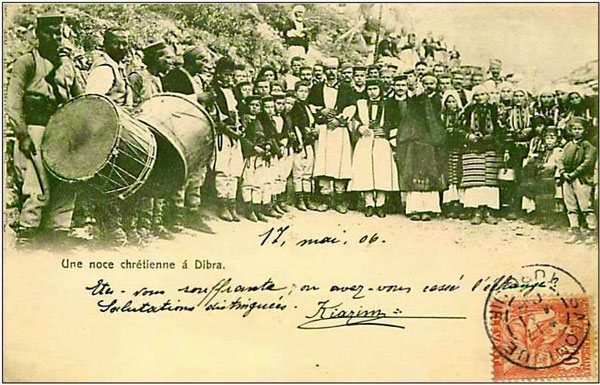 17, mai, 06.
Une noce chrétienne á Dibra.
Etes-vous souffrante, ou avez-vous cessé l'échange
Salutations distinguées. Kiazim
SALONIQUE